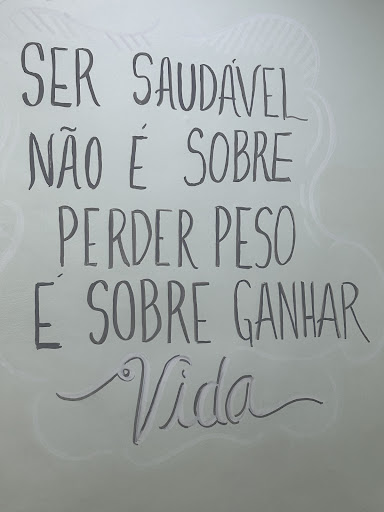 SER SAUDÁVEL
NÃO É SOBRE
PERDER PESO
É SOBRE GANHAR
Vida